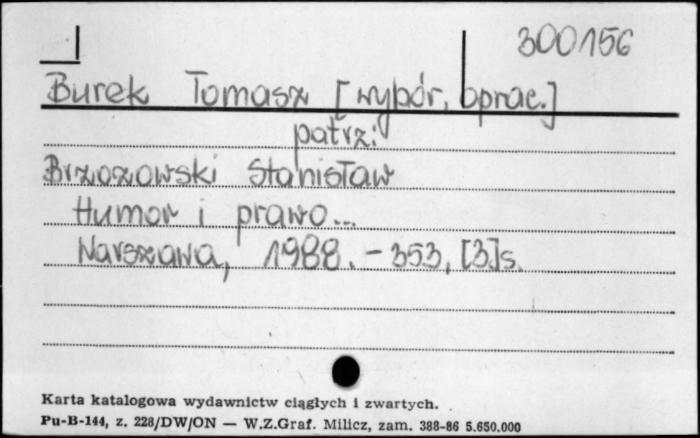 300156
Burek Tomasz [wybór, oprac.]
patrz:
Brzozowski Stanisław
Humor i prawo...
Warszawa, 1988. – 353, [3]s.
Karta katalogowa wydawnictw ciągłych i zwartych.
Pu-B-144, z. 228/DW/ON — W.Z.Graf. Milicz, zam. 388-86 5.650.000